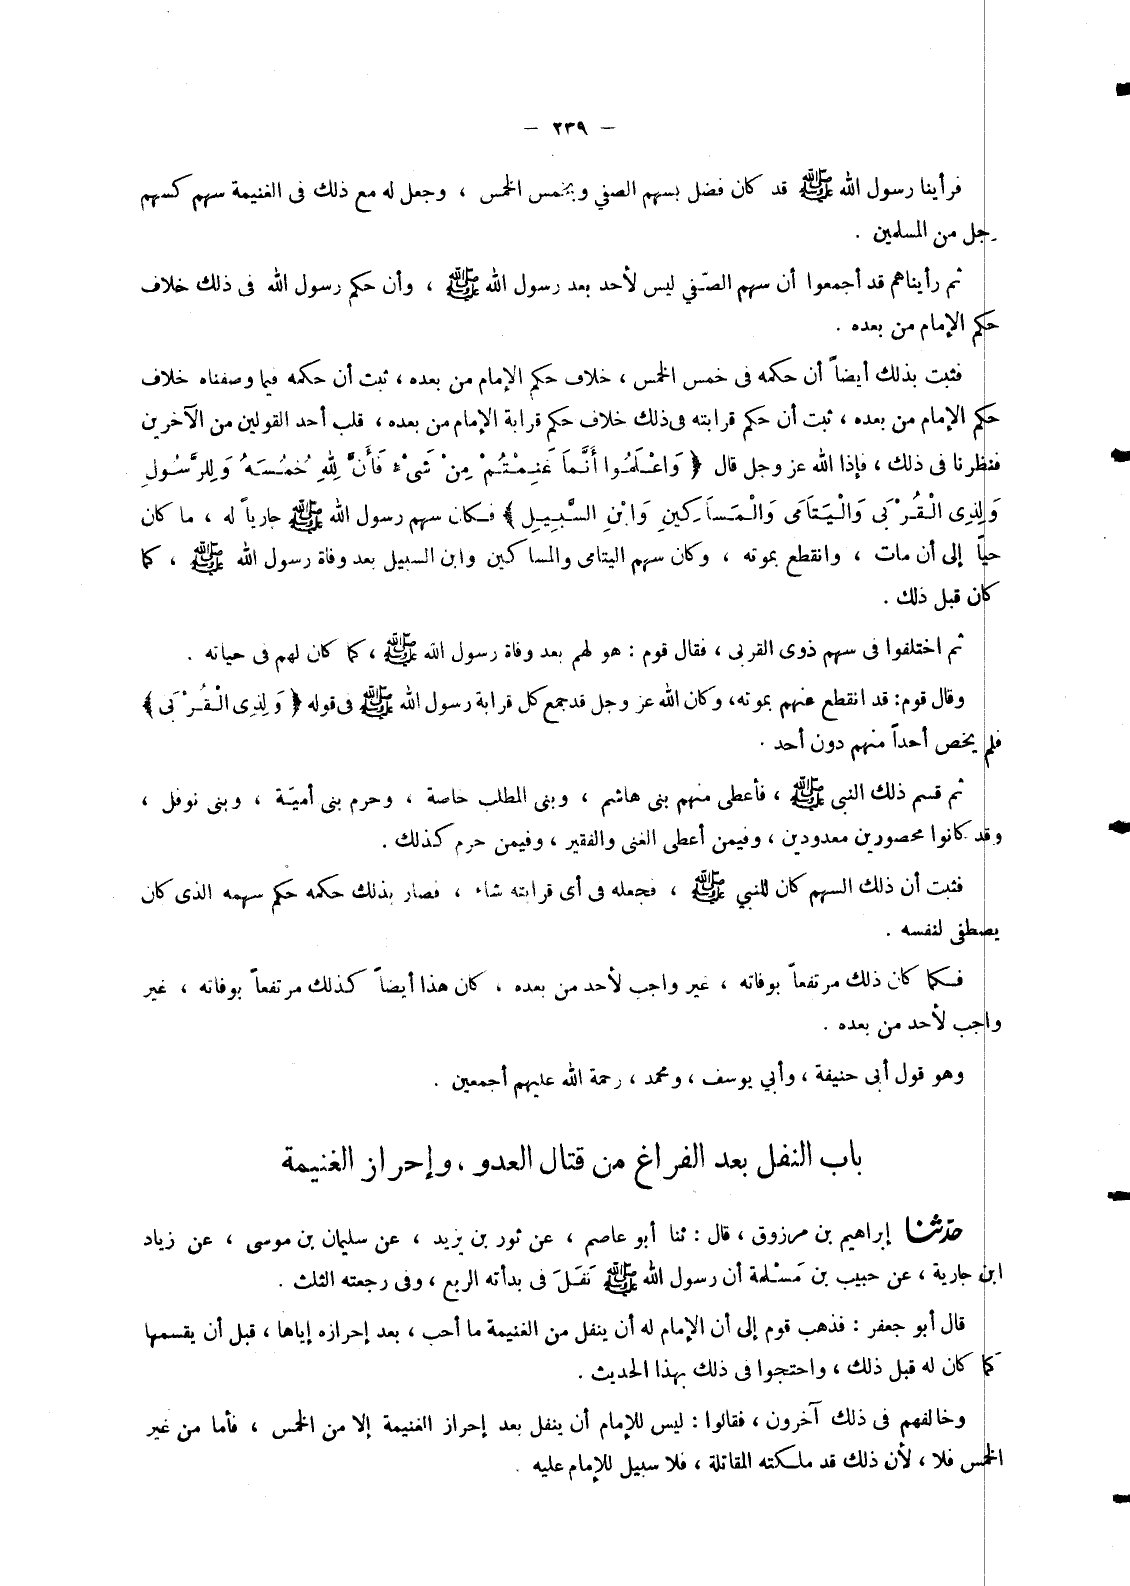 — ٢٣٩ —
فرأينا رسول الله ﷺ قد كان فضل بسهم الصفي وبخمس الخمس ، وجعل له مع ذلك فى الغنيمة سهم كسهم
رجل من المسلمين .
ثم رأيناهم قد أجمعوا أن سهم الصّفي ليس لأحد بعد رسول الله ﷺ ، وأن حكم رسول الله فى ذلك خلاف
حكم الإمام من بعده .
فثبت بذلك أيضاً أن حكمه فى خمس الخمس ، خلاف حكم الإمام من بعده ، ثبت أن حكمه فيما وصفناه خلاف
حكم الإمام من بعده ، ثبت أن حكم قرابته فى ذلك خلاف حكم قرابة الإمام من بعده ، فلب أحد القولين من الآخرين
فنظرنا فى ذلك ، فإذا الله عز وجل قال ﴿ وَاعْلَمُوا أَنَّمَا غَنِمْتُمْ مِنْ شَىْءٍ فَأَنَّ لِلّٰهِ خُمُسَهُ وَلِلرَّسُولِ
وَلِذِى الْقُرْبَى وَالْيَتَامَى وَالْمَسَاكِينِ وَابْنِ السَّبِيلِ ﴾ فكان سهم رسول الله ﷺ جارياً له ، ما كان
حيًّا إلى أن مات ، وانقطع بموته ، وكان سهم اليتامى والمساكين وابن السبيل بعد وفاة رسول الله ﷺ ، كما
كان قبل ذلك .
ثم اختلفوا فى سهم ذوى القربى ، فقال قوم : هو لهم بعد وفاة رسول الله ﷺ ، كما كان لهم فى حياته .
وقال قوم: قد انقطع عنهم بموته، وكان الله عز وجل قد جمع كل قرابة رسول الله ﷺ فى قوله ﴿ وَلِذِى الْقُرْبَى ﴾
فلم يخص أحداً منهم دون أحد .
ثم قسم ذلك النبي ﷺ ، فأعطى منهم بنى هاشم ، وبنى المطلب خاصة ، وحرم بنى أميّة ، وبنى نوفل ،
وقد كانوا محصورين معدودين ، وفيمن أعطى الغنى والفقير ، وفيمن حرم كذلك .
فثبت أن ذلك السهم كان للنبي ﷺ ، فجعله فى أى قرابته شاء ، فصار بذلك حكمه حكم سهمه الذى كان
يصطفى لنفسه .
فكما كان ذلك مرتفعاً بوفاته ، غير واجب لأحد من بعده ، كان هذا أيضاً كذلك مرتفعاً بوفاته ، غير
واجب لأحد من بعده .
وهو قول أبى حنيفة ، وأبي يوسف ، ومحمد ، رحمة الله عليهم أجمعين .
باب النفل بعد الفراغ من قتال العدو ، وإحراز الغنيمة
حدّثنا إبراهيم بن مرزوق ، قال : ثنا أبو عاصم ، عن ثور بن يزيد ، عن سليمان بن موسى ، عن زياد
ابن جارية ، عن حبيب بن مَسْلمة أن رسول الله ﷺ نَفَلَ فى بدأته الربع ، وفى رجعته الثلث .
قال أبو جعفر : فذهب قوم إلى أن الإمام له أن ينفل من الغنيمة ما أحب ، بعد إحرازه إياها ، قبل أن يقسمها
كما كان له قبل ذلك ، واحتجوا فى ذلك بهذا الحديث .
وخالفهم فى ذلك آخرون ، فقالوا : ليس للإمام أن ينفل بعد إحراز الغنيمة إلا من الخمس ، فأما من غير
الخمس فلا ، لأن ذلك قد ملكته المقاتلة ، فلا سبيل للإمام عليه .